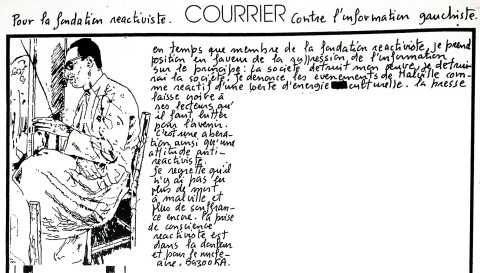 Pour la fondation reactiviste. COURRIER contre l'information gauchiste.
en temps que membre de la fondation reactiviste, je prend
position en faveur de la suppression de l'information
sur le principe: la societe detruit mon œuvre, je detrui-
rai la societe. je denonce les evenements de Malville com-
me reactif d'une perte d'energie culturelle. la presse
laisse croire à
ses lecteurs qu'
il faut lutter
pour l'avenir.
c'est une aberа-
tion ainsi qu'une
attitude anti-
reactiviste.
Je regrette qu'il
n'y ai pas eu
plus de mort
à malville et
plus de souffran-
ce encore. la prise
de conscience
reactiviste est
dans la douleur
et pour le nucle-
aire.